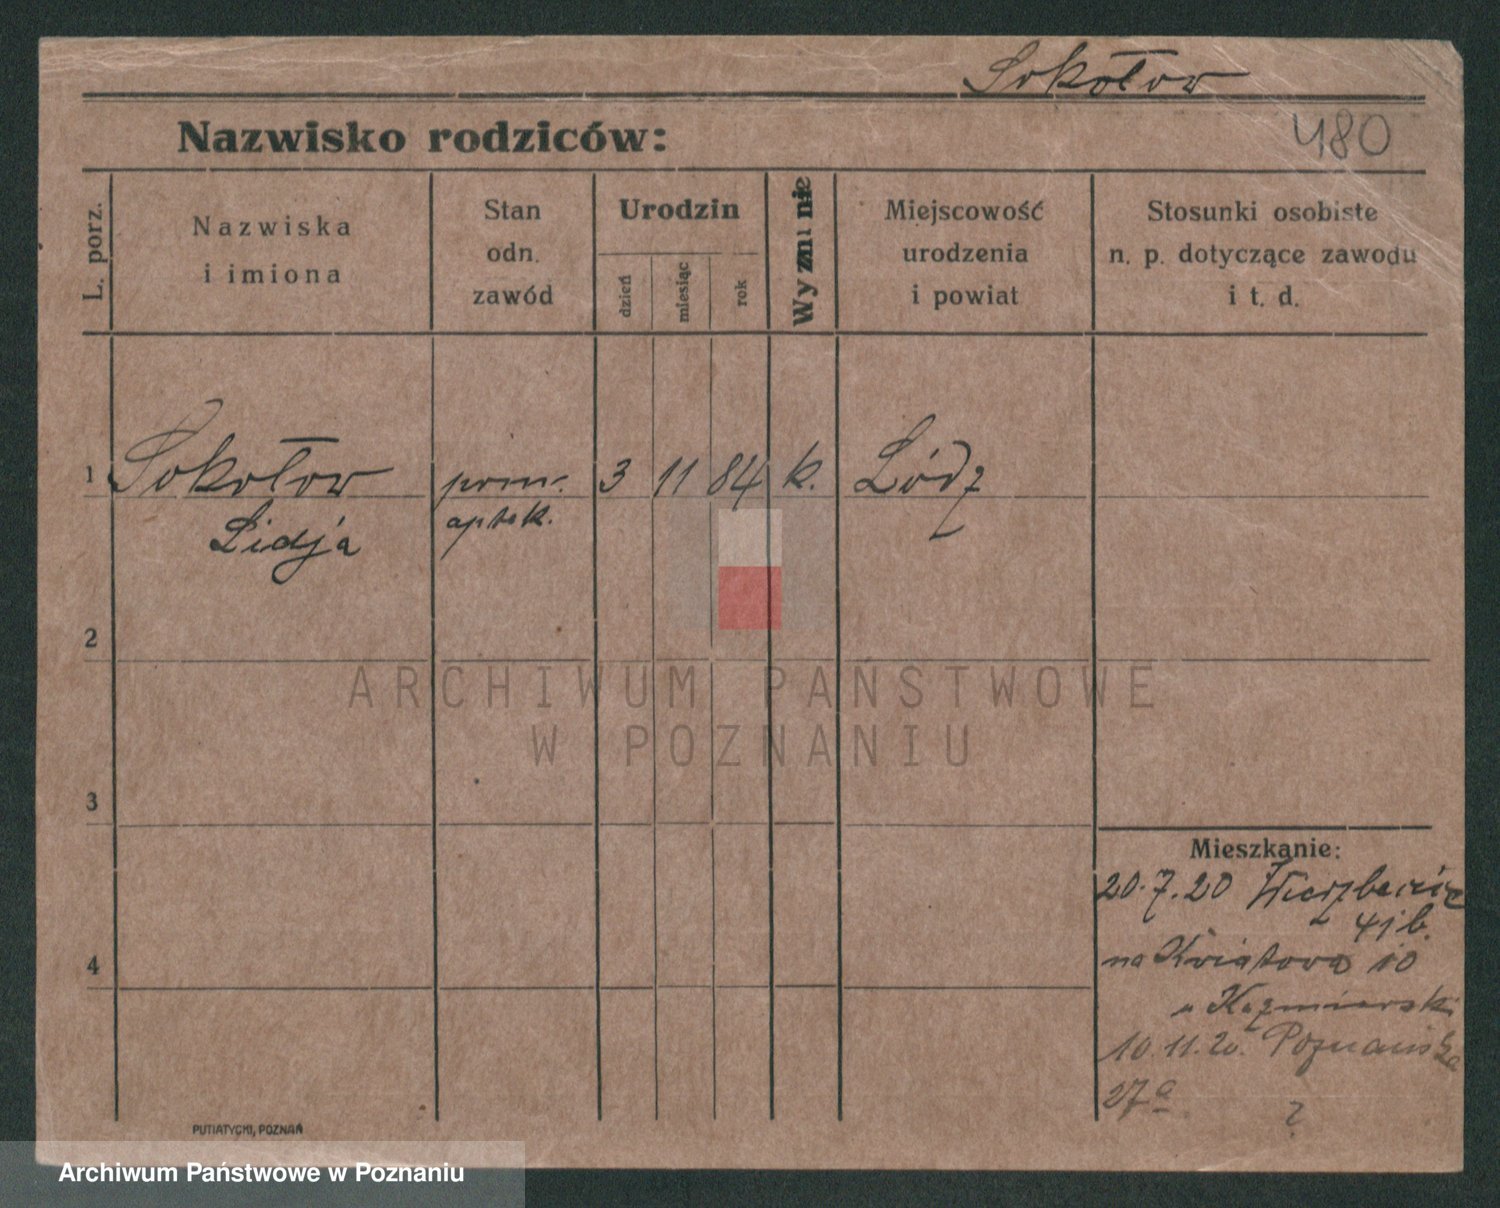 Sokołow
Nazwisko rodziców:
480
L. porz.
Nazwiska
i imiona
Stan
odn.
zawód
Urodzin
dzień
miesiąc
rok
Wyznanie
Miejscowość
urodzenia
i powiat
Stosunki osobiste
n. p. dotyczące zawodu
i t. d.
1 Sokołow pom. 3 11 84 k. Łódź
Lidja aptek.
2
ARCHIWUM PAŃSTWOWE
W POZNANIU
3
Mieszkanie:
20.7.20 Wierzbięcie
41 b.
na Kwiatowa 10
u Kaźmierski
10.11.20. Poznańska
27a
?
4
PUTIATYCKI, POZNAŃ
Archiwum Państwowe w Poznaniu